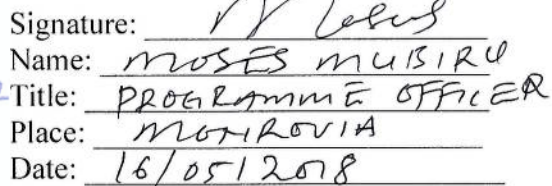 Signature:
Name: MOSES MUBIRU
Title: PROGRAMME OFFICER
Place: MONROVIA
Date: 16/05/2018